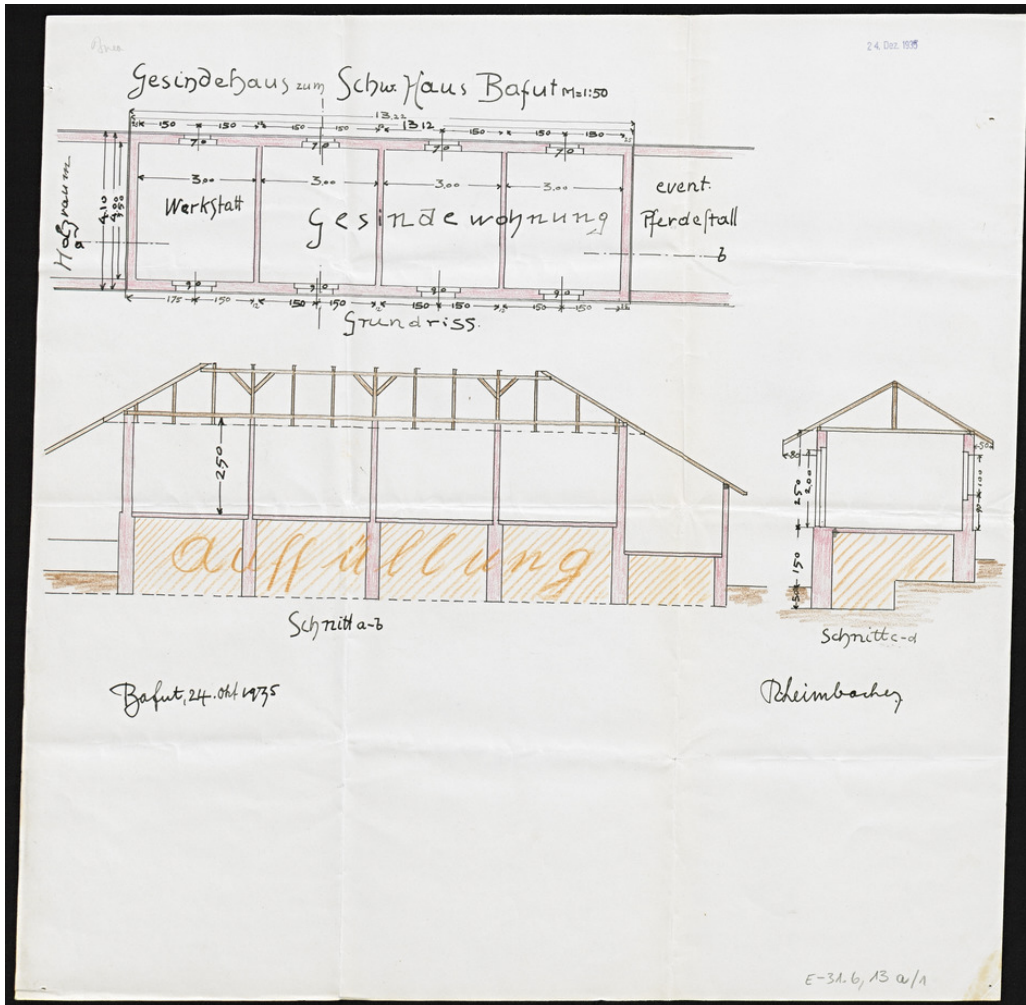 24. Dez. 1935
Gesindehaus zum Schw. Haus Bafut M=1:50
13,22
25 150 150 12 150 150 12 13 12 150 150 150 25
70 70 70 70
Holzraum
a
4.10
4.00
3.50
3.00 3.00 3.00 3.00
Werkstatt
Gesindewohnung
event.
Pferdestall
b
90 90 90 90
175 150 12 150 150 12 150 150 12 150 150 25
Grundriss.
250
Auffüllung
Schnitt a-b
80
50
250
200
100
150
50
Schnitt c-d
Bafut, 24. Okt 1935
Rheimbacher
E-31.6, 13 a/1